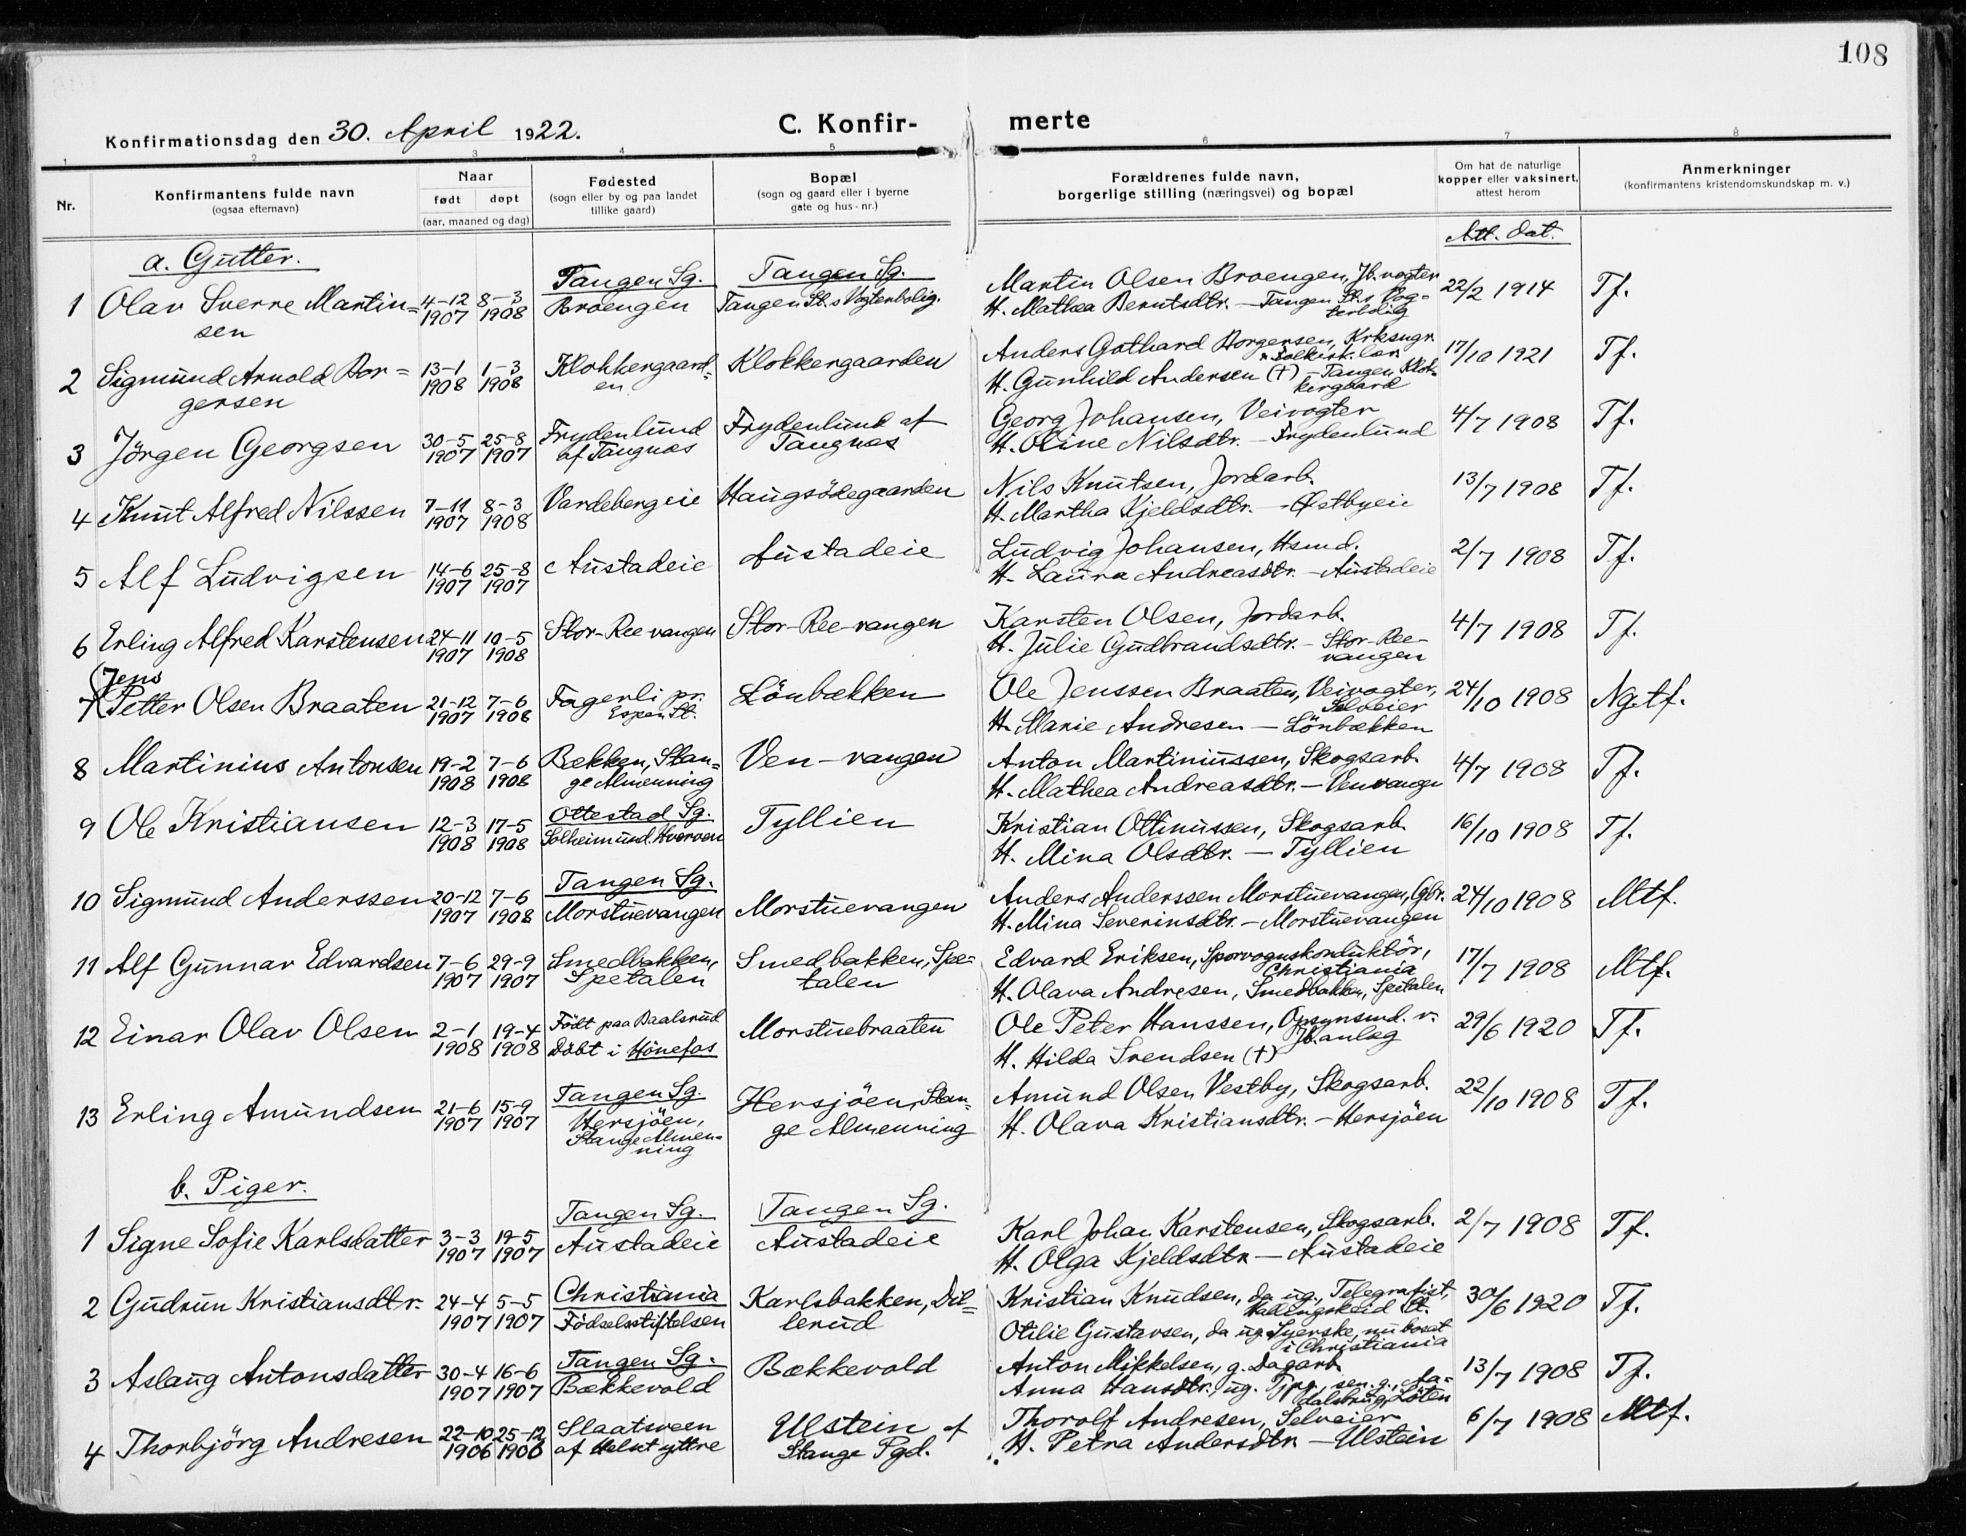 108
Konfirmationsdag den 30. April 1922.
C. Konfir- merte
1 2 3 4 5 6 7 8
Nr.
Konfirmantens fulde navn
(ogsaa efternavn)
Naar
født døpt
(aar, maaned og dag)
Fødested
(sogn eller by og paa landet
tillike gaard)
Bopæl
(sogn og gaard eller i byerne
gate og hus-nr.)
Forældrenes fulde navn,
borgerlige stilling (næringsvei) og bopæl
Om hat de naturlige
kopper eller vaksinert,
attest herom
Anmerkninger
(konfirmantens kristendomskundskap m. v.)
Att. dat.
a. Gutter.
Tangen Sg. Tangen Sg.
1 Olav Sverre Martin= 4-12 8-3 Broengen Tangen St.s Vogterbolig. Martin Olsen Broengen, Jb.vogter 22/2 1914 Tf.
sen 1907 1908 H. Mathea Berntsdtr. - Tangen St.s Vog=
terbolig
2 Sigmund Arnold Bor= 13-1 1-3 Klokkergaard= Klokkergaarden Anders Gothard Borgersen, Krksngr. 17/10 1921 Tf.
gersen 1908 1908 en H. Gunhild Andersen (+) - Tangen Klok-
kergaard
3 Jörgen Georgsen 30-5 25-8 Frydenlund Frydenlund af Georg Johansen, Veivogter 4/7 1908 Tf.
1907 1907 af Tangnæs Tangnæs H. Oline Nilsdtr. - Frydenlund
4 Knut Alfred Nilssen 7-11 8-3 Vardebergeie Haugsödegaarden Nils Knutsen, Jordarb. 13/7 1908 Tf.
1907 1908 H. Martha Kjeldsdtr. - Østbyeie
5 Alf Ludvigsen 14-6 25-8 Austadeie Austadeie Ludvig Johansen, Hsmd. 2/7 1908 Tf.
1907 1907 H. Laura Andreasdtr. - Austadeie
6 Erling Alfred Karstensen 24-11 10-5 Stor-Ree vangen Stor-Ree-vangen Karsten Olsen, Jordarb. 4/7 1908 Tf.
1907 1908 H. Julie Gudbrandsdtr. - Stor-Ree-
vangen
(Jens
7 Petter Olsen Braaten 21-12 7-6 Fagerli pr. Lönbækken Ole Jenssen Braaten, Veivogter, 24/10 1908 Ng.tf.
1907 1908 Espen St. Selveier
H. Marie Andresen - Lönbækken
8 Martinius Antonsen 19-2 7-6 Bækken, Stan= Ven-vangen Anton Martiniussen, Skogsarb. 4/7 1908 Tf.
1908 1908 ge Almenning H. Mathea Andreasdtr. - Venvangen
9 Ole Kristiansen 12-3 17-5 Ottestad Sg. Tyllien Kristian Ottinussen, Skogsarb. 16/10 1908 Tf.
1908 1908 Solheim und. Hverven H. Mina Olsdtr. - Tyllien
10 Sigmund Anderssen 20-12 7-6 Tangen Sg. Morstuevangen Anders Anderssen Morstuevangen, Gbr. 24/10 1908 Mtf.
1907 1908 Morstuevangen H. Mina Severinsdtr. - Morstuevangen
11 Alf Gunnar Edvardsen 7-6 29-9 Smedbakken, Smedbakken, Spe= Edvard Eriksen, Sporvognskonduktör, 17/7 1908 Mtf.
1907 1907 Spetalen talen Christiania
H. Olava Andresen, Smedbakken, Spetalen
12 Einar Olav Olsen 2-1 19-4 Födt paa Baalsrud Morstuebraaten Ole Peter Hanssen, Opsynsmd. v. 29/6 1920 Tf.
1908 1908 Döbt i Hönefos Jb.anlæg
H. Hilda Svendsen (+)
13 Erling Amundsen 21-6 15-9 Tangen Sg. Hersjöen, Stan= Amund Olsen Vestby, Skogsarb. 22/10 1908 Tf.
1907 1907 Hersjöen, ge Almenning H. Olava Kristiansdtr. - Hersjöen
Stange Almen=
ning
b. Piger.
Tangen Sg. Tangen Sg.
1 Signe Sofie Karlsdatter 3-3 19-5 Austadeie Austadeie Karl Johan Karstensen, Skogsarb. 2/7 1908 Tf.
1907 1907 H. Olga Kjeldsdtr. - Austadeie
2 Gudrun Kristiansdtr. 24-4 5-5 Christiania Karlsbakken, Dil= Kristian Knudsen, da ug., Telegrafist, 30/6 1920 Tf.
1907 1907 Födselsstiftelsen lerud St.
Otilie Gustavsen, da ug. Syerske, nu bosat
i Christiania
3 Aslaug Antonsdatter 30-4 16-6 Tangen Sg. Bækkevold Anton Mikkelsen, g. Dagarb. 13/7 1908 Tf.
1907 1907 Bækkevold Anna Hansdtr., ug. Tjpg., sen. g., Aa=
dalsbrug, Löten
4 Thorbjörg Andresen 22-10 25-12 Slaatsveen Ulstein af Thorolf Andresen, Selveier 6/7 1908 Mtf.
1906 1906 af Helset yttre Stange Pgd. H. Petra Andersdtr. - Ulstein